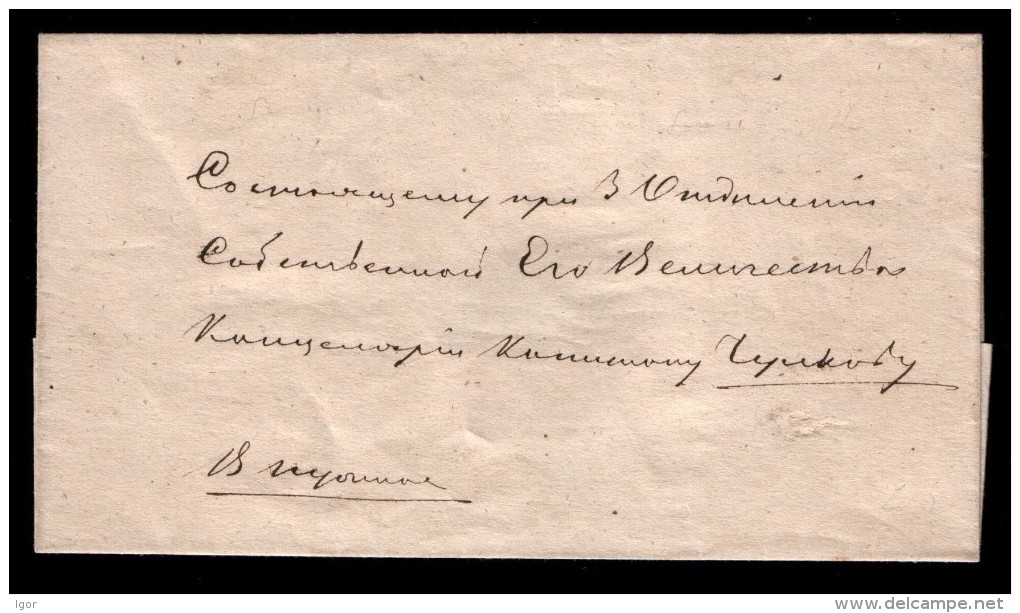 Состоящему при 3 Отделении
Собственной Его Величества
Канцелярiи Капитану Чулкову
В
Igor
delcampe.net